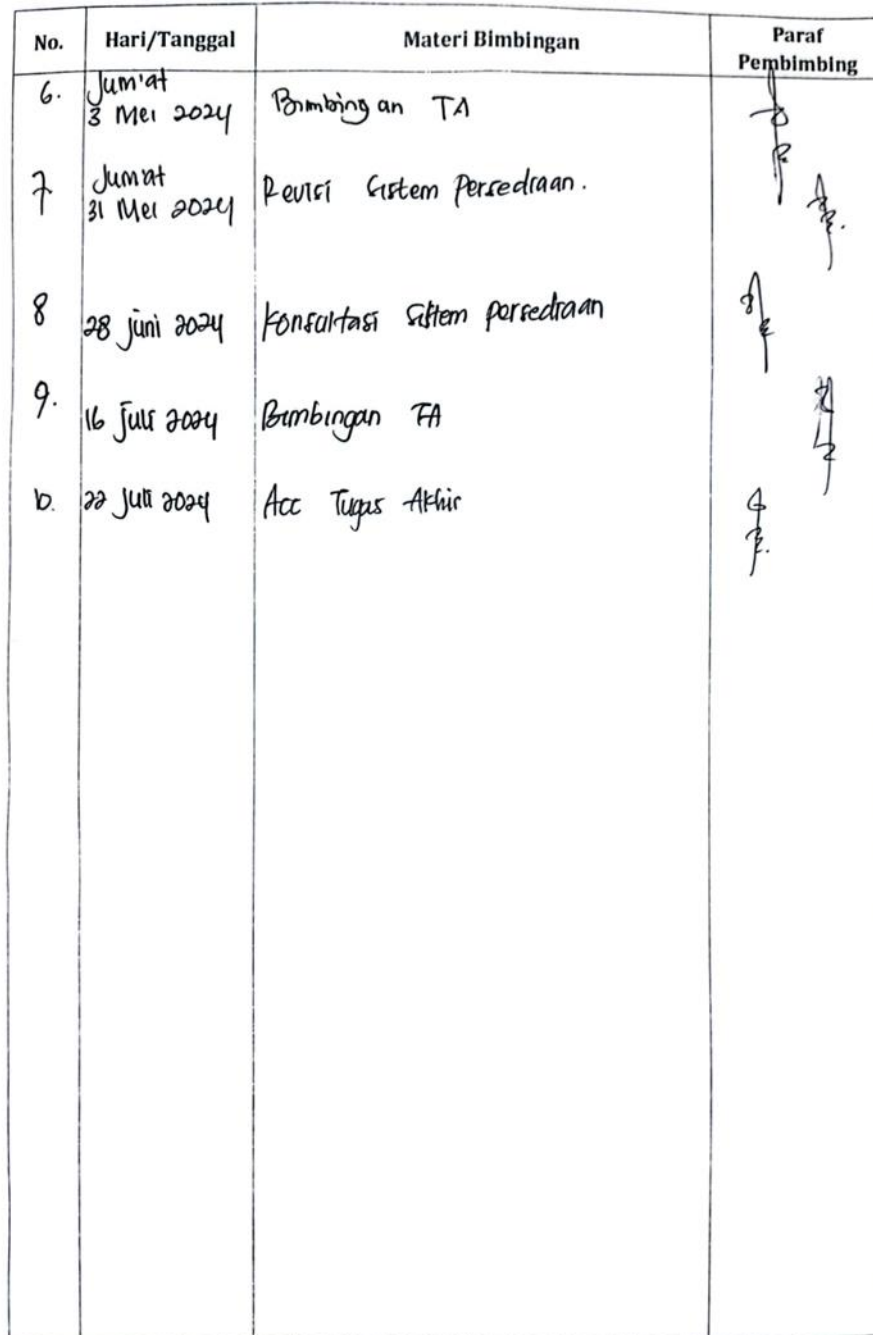 No. Hari/Tanggal Materi Bimbingan Paraf Pembimbing
6. Jum'at
3 Mei 2024 Bimbingan TA
7 Jumat
31 Mei 2024 Revisi Sistem Persediaan.
8 28 Juni 2024 Konsultasi Sistem persediaan
9. 16 Juli 2024 Bimbingan TA
10. 22 Juli 2024 Acc Tugas Akhir